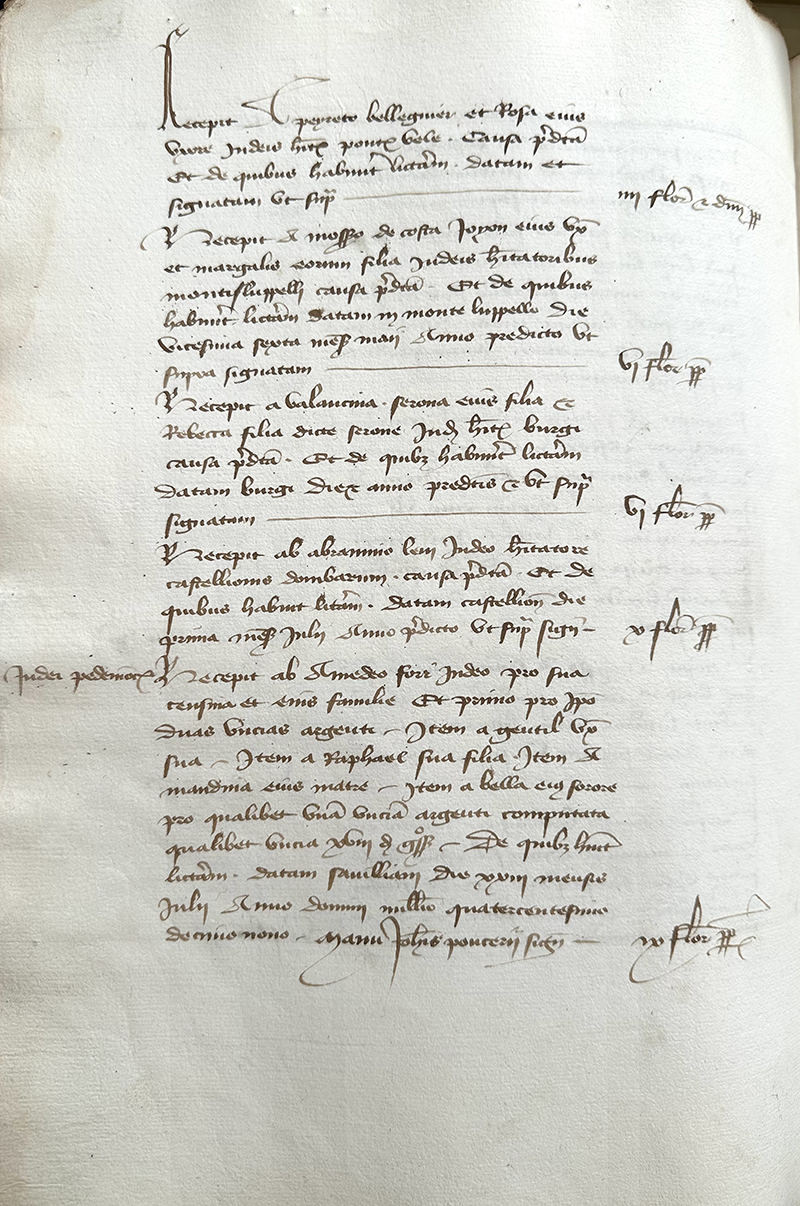 Recepit A peyreto belleguier et Rosa eius
uxore Judeis hitx pontx vele . Causa pdta
Et de quibus habuint lictam . datam et
signatam ut sup
iiii flor z dim pp
Recepit A mosso de costa Joyon eius ux
et margalis eorum filia Judeis hitatoribus
montisluppelli causa pdta . Et de quibus
habuint lictam datam in monte luppello die
vicesima sexta mens maii Anno predicto ut
supra signatam
vi flor pp
Recepit a valancina . serona eius filia z
Rebecca filia dicte serone Jud hitx burgi
causa pdta . Et de quibz habuint lictam
datam burgi die z anno predctis z ut sup
signatam
vi flor pp
Recepit ab abramino levi Judeo hitatore
castellionis dombarum . causa pdta . Et de
quibus habuit litam . datam castellion die
prima mens Julii Anno pdicto ut sup sign
x flor pp
Judei pedemotx
Recepit ab Amedeo Judeo pro sua
censiua et eius familie Et primo pro ipo
duas uncias argenti – Item a gentil ux
sua – Item a Raphael sua filia . Item A
mandina eius matre – Item a bella eius sorore
pro qualibet una uncia argenti computata
qualibet uncia xviii d goss – De quibz huit
lictam . datam sauilliani die xxiii mensis
Julii Anno domini millio quatercentesimo
decimo nono – Manu Johis poncerii sign
ix flor pp